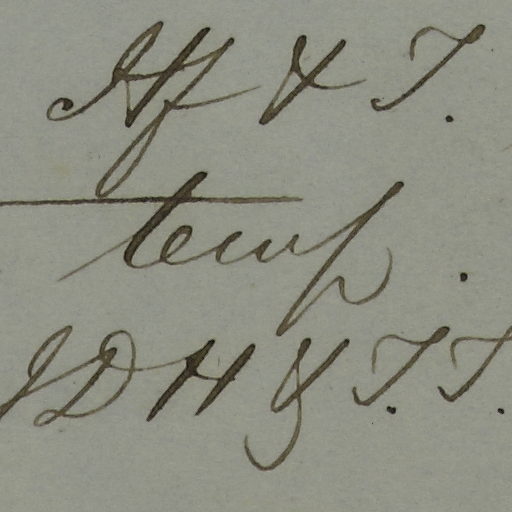 Hf & T.
temp.
JDH & T. T.